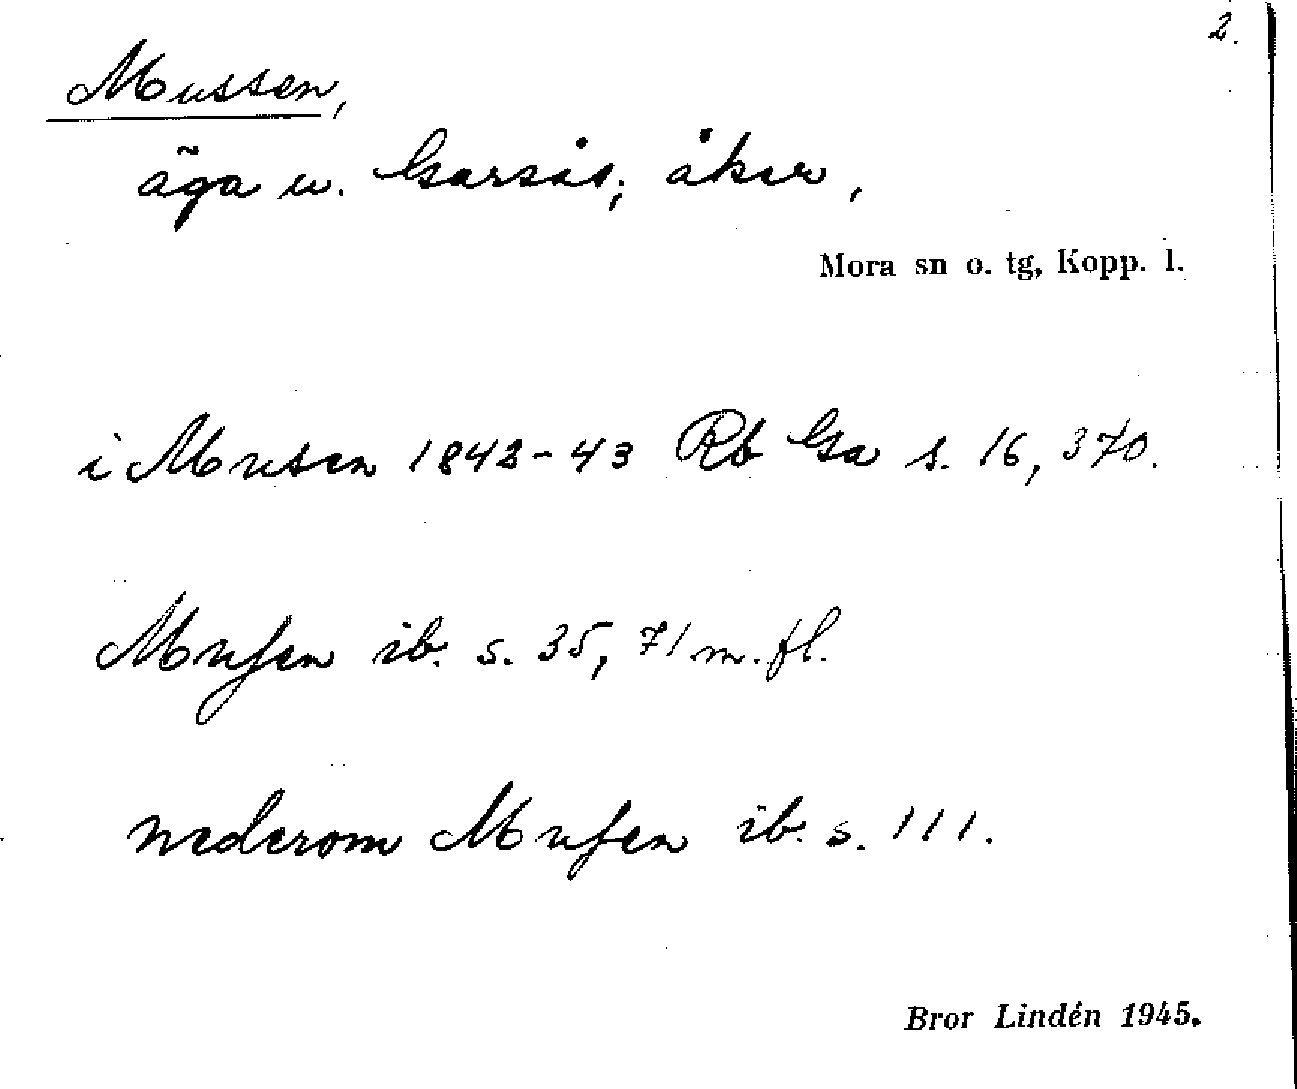 2.
Mussen,
äga u. Garsås; åker,
Mora sn o. tg, Kopp. l.
i Musen 1842-43 Rb Ga s. 16, 370.
Muſen ib. s. 35, 71 m. fl.
nederom Muſen ib. s. 111.
Bror Lindén 1945.